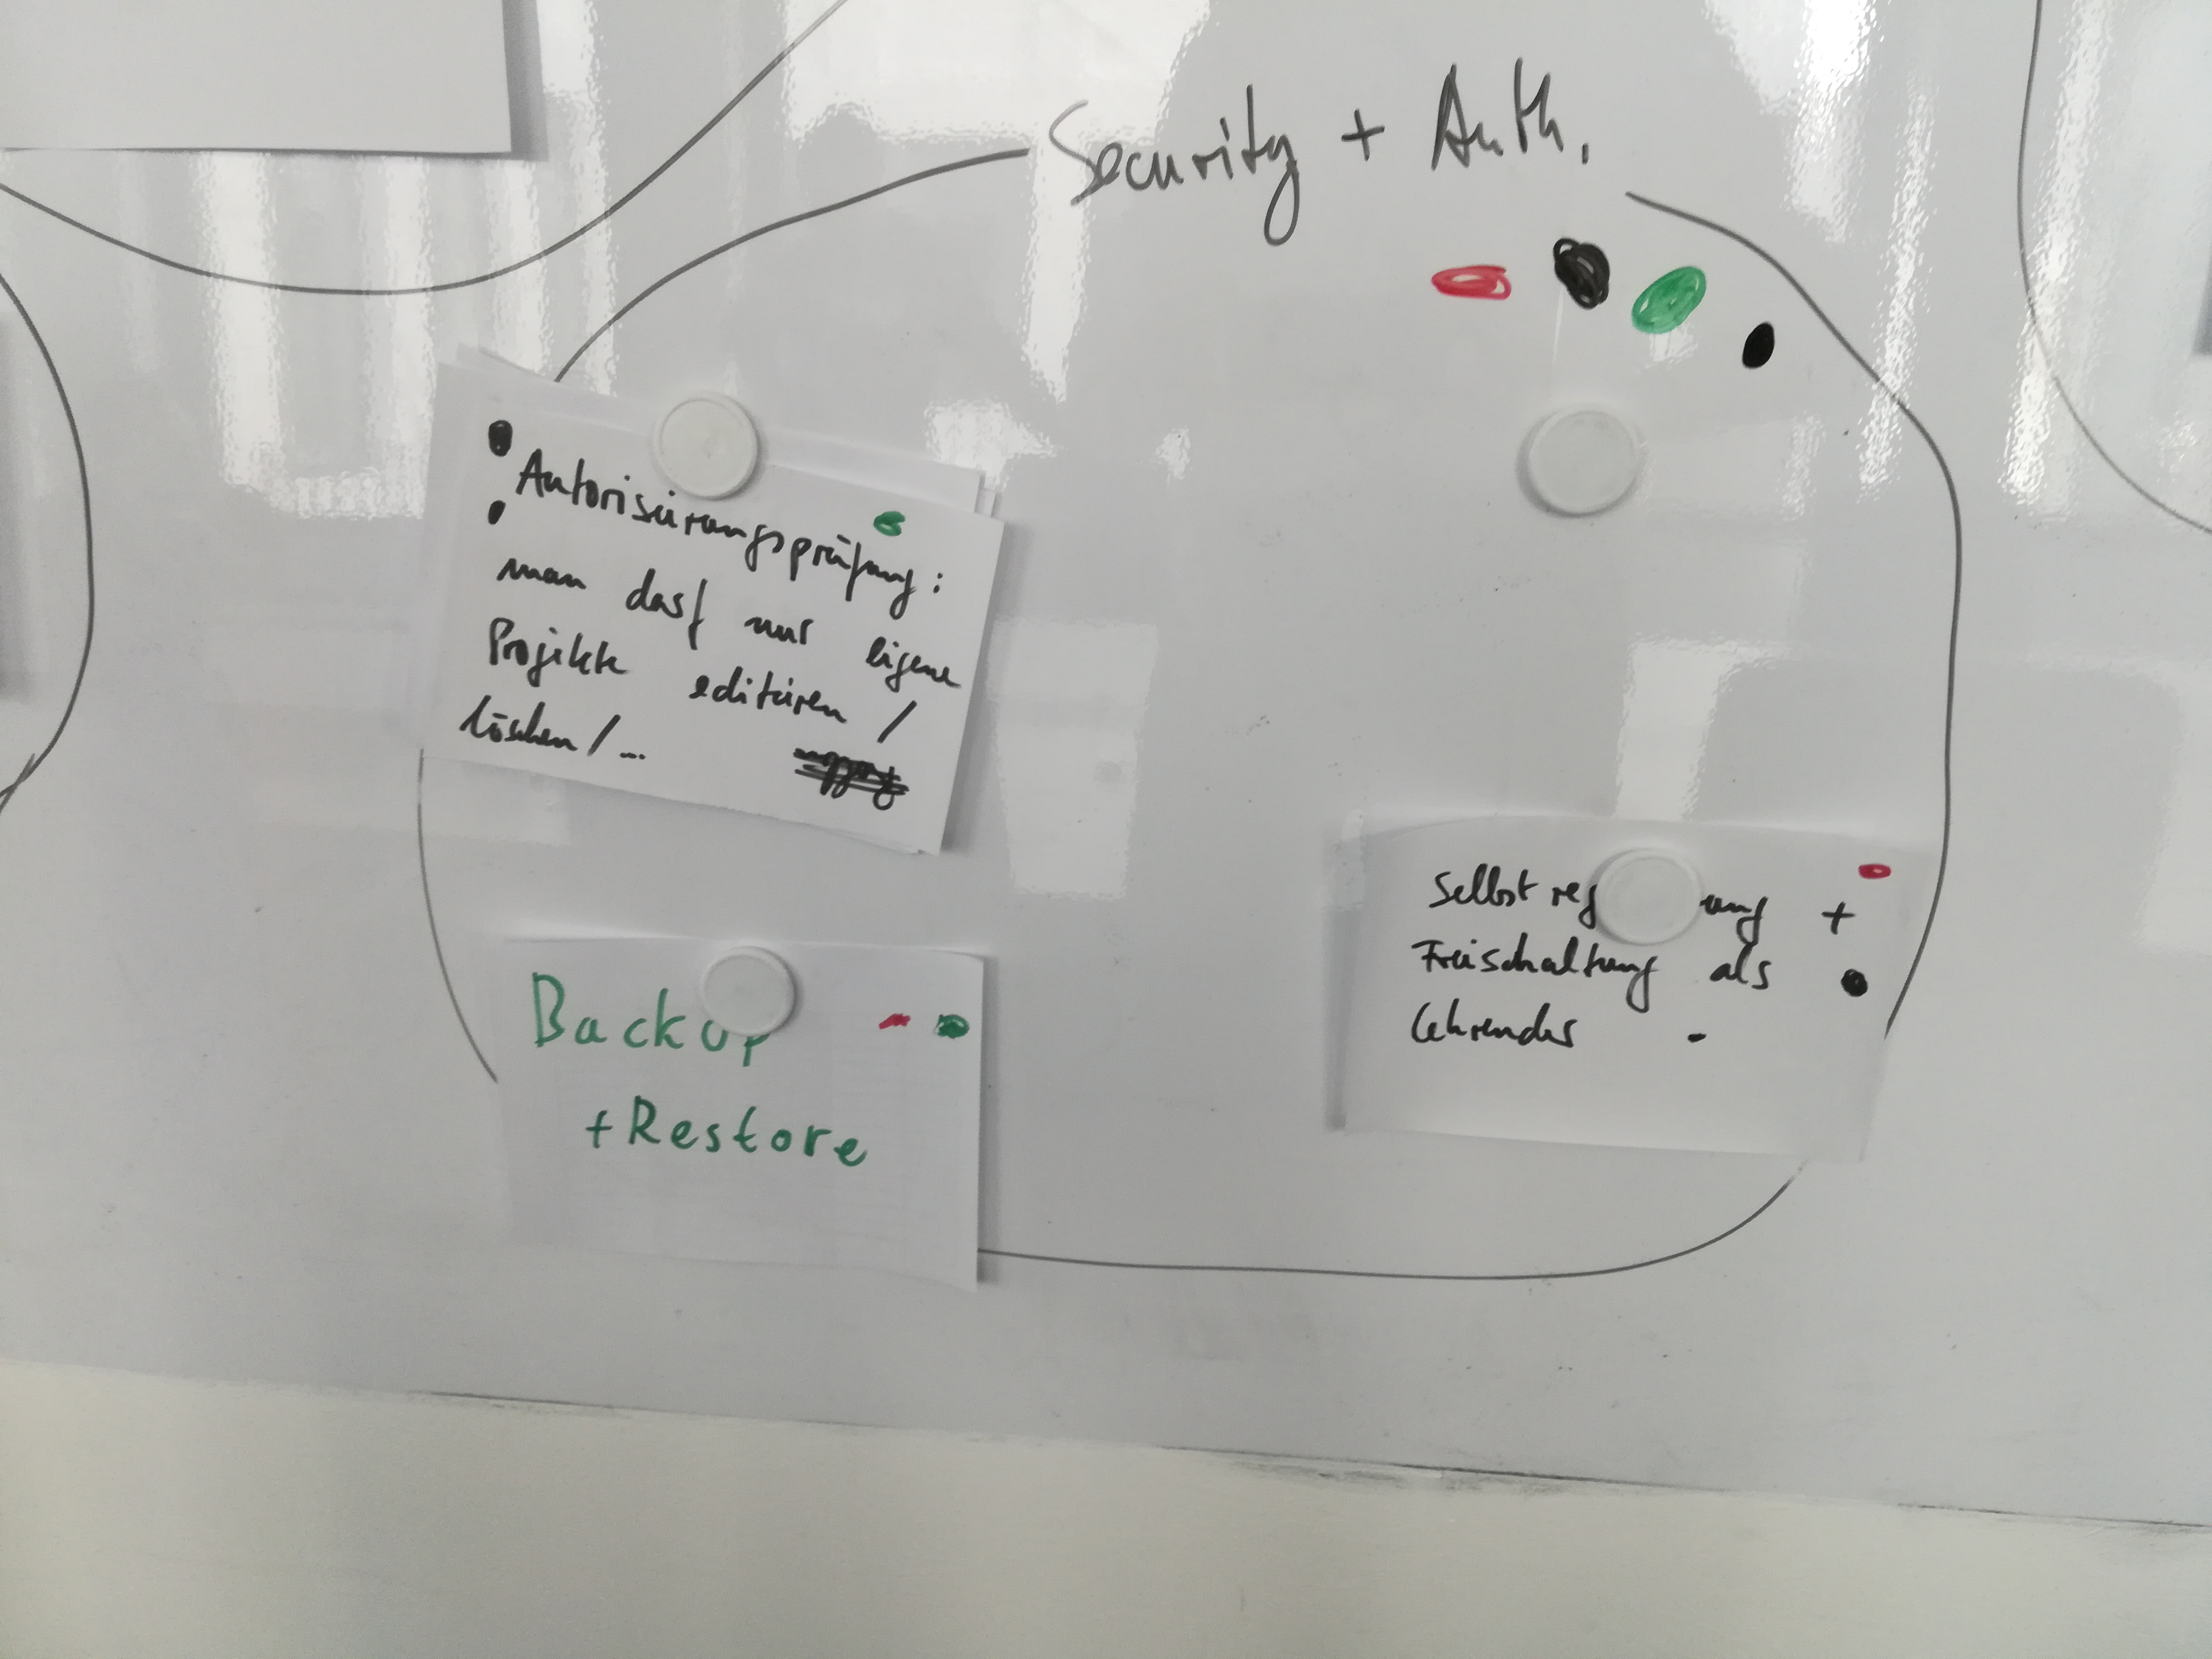 Security + Auth.
Autorisierungsprüfung:
man darf nur eigene
Projekte editieren /
löschen / ...
Backup
+ Restore
Selbstreg ung +
Freischaltung als
Lehrender